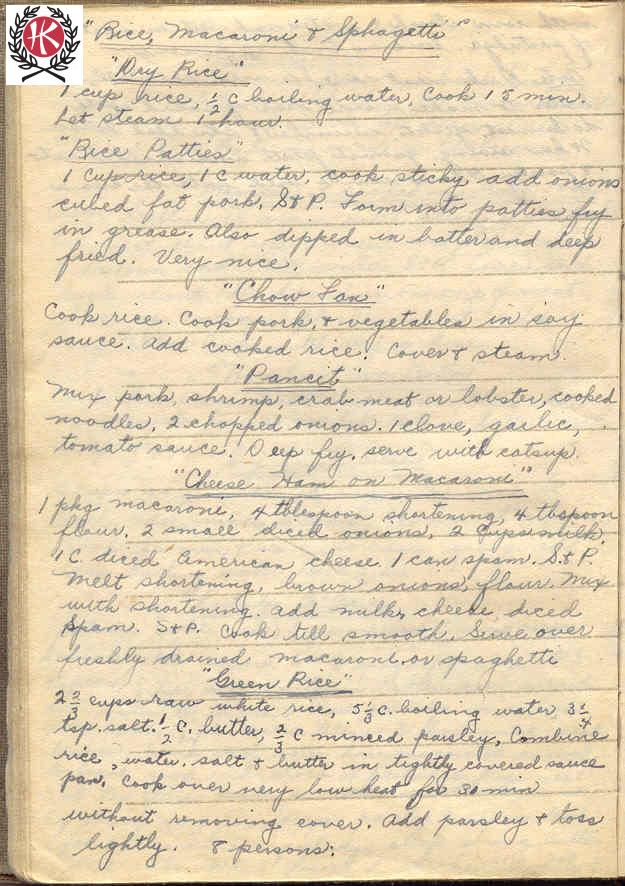 HK
"Rice, Macaroni & Sphagetti"
"Dry Rice"
1 cup rice, 1/2 C boiling water, Cook 15 min.
Let steam 1 hour.
"Rice Patties"
1 Cup rice, 1 C water, cook sticky add onions
cubed fat pork, S+P. Form into patties fry
in grease. Also dipped in batter and deep
fried. Very nice.
"Chow Fan"
Cook rice. Cook pork, & vegetables in soy
sauce. Add cooked rice. Cover & steam.
"Pancit"
Mix pork, shrimp, crab meat or lobster, cooked
noodles, 2 chopped onions. 1 clove, garlic,
tomato sauce. Deep fry, serve with catsup.
"Cheese Ham on Macaroni"
1 pkg macaroni, 4 tblespoon shortening, 4 tbspoon
flour, 2 small diced onions, 2 Cups milk,
1 C. diced American cheese. 1 can spam. S+P.
Melt shortening, brown onions, flour. Mix
with shortening. add milk, cheese diced
Spam. S+P. Cook till smooth. Serve over
freshly drained macaroni or spaghetti
"Green Rice"
2 2/3 cups raw white rice, 5 1/3 C. boiling water 3 1/4
tsp. salt. 1/2 C. butter, 2/3 C minced parsley, Combine
rice, water, salt & butter in tightly covered sauce
pan. Cook over very low heat for 30 min
without removing cover. Add parsley & toss
lightly. 8 persons.